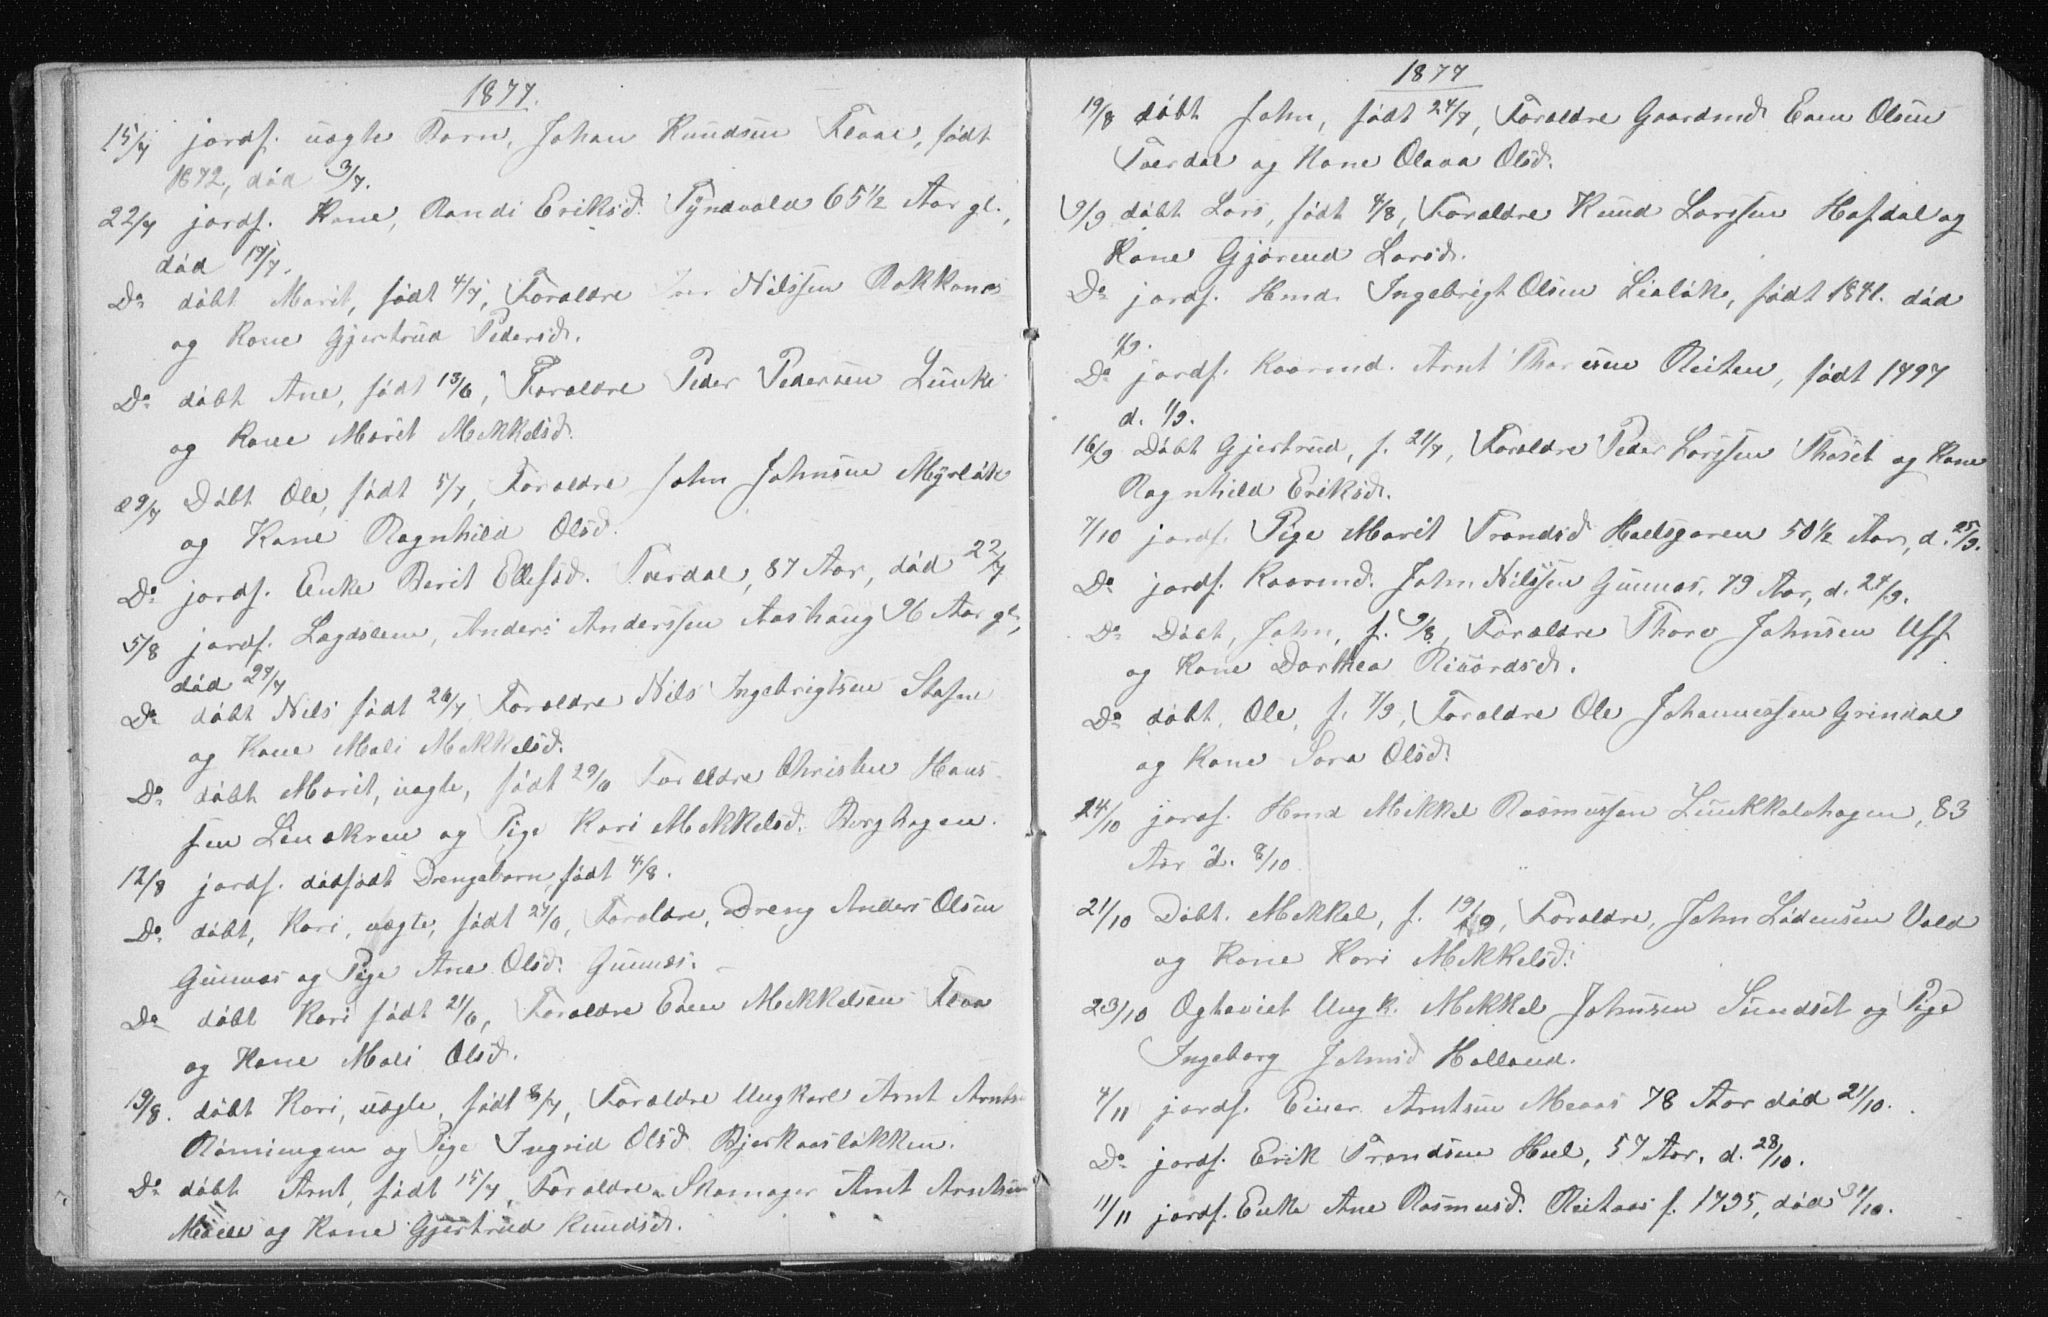 1877.
15/7 jordf. uægte Barn, Johan Knudsen Flaae, født
1872, død 3/7.
22/7 jordf. Kone, Randi Eriksd. Tyndvold 65 1/2 Aar gl.,
død 17/7.
Do døbt Marit, født 4/7, Forældre Iver Nilssen Rokkones
og Kone Gjertrud Pedersd.
Do døbt Ane, født 13/6, Forældre Peder Pedersen Lunke
og Kone Marit Mekkelsd.
29/7 Døbt Ole, født 5/7, Forældre John Johnsen Myrløk
og Kone Ragnhild Olsd.
Do jordf. Enke Berit Ellefsd. Foerdal, 87 Aar, død 22/7
5/8 jordf. Lægdslem, Anders Anderssen Aashaug 96 Aar gl.,
død 27/7
Do døbt Nils født 26/7 Forældre Nils Ingebrigtsen Stafne
og Kone Mali Mekkelsd.
Do døbt Marit, uægte, født 29/6 Forældre Christen Hans-
sen Lenakren og Pige Kari Mekkelsd. Berghagen.
12/8 jordf. dødfødt Drengebarn, født 4/8.
Do døbt, Kari, uægte, født 27/6, Forældre, Dreng Anders Olsen
Gunnes og Pige Ane Olsd. Gunnes.
Do døbt Kari født 21/6, Forældre Even Mekkelsen Floa
og Kone Mali Olsd.
19/8. døbt Kari, uægte, født 8/7, Forældre Ungkarl Arnt Arnts
Rønningen og Pige Ingrid Olsd Bjerkaasløkken.
Do døbt Arnt, født 15/7, Forældre Skomager Arnt Arntsen
Moen og Kone Gjertrud Knudsd.
1877
19/8 døbt John, født 24/7, Forældre Gaardmd. Even Olsen
Foerdal og Kone Olava Olsd.
9/9 døbt Lars, født 4/8, Forældre Knud Larssen Hafdal og
Kone Gjørend Larsd.
Do jordf. Hmd. Ingebrigt Olsen Lialøk, født 1841. død
1/9.
Do jordf. Kaarmd. Arnt Thoresen Reiten, født 1797
d. 1/9.
16/9 Døbt Gjertrud, f. 21/7, Forældre Peder Larssen Thøset og Kone
Ragnhild Eriksd.
7/10 jordf. Pige Marit Trondsd Haelsgaren 50 1/2 Aar, d. 25/9.
Do jordf. Kaarmd. John Nilssen Gunnes, 79 Aar, d. 27/9.
Do Døbt, John, f. 9/8, Forældre Thore Johnsen Uff
og Kone Dorthea Ricardsd.
Do døbt, Ole, f. 7/9, Forældre Ole Johannessen Grindal
og Kone Sara Olsd.
14/10 jordf. Hmd Mekkel Rasmussen Lunkkalshagen, 83
Aar d. 8/10
21/10 Døbt. Mekkel, f. 19/9, Forældre, John Lødensen Vold
og Kone Kari Mekkelsd.
23/10 Egteviet Ungk. Mekkel Johnsen Sundset og Pige
Ingeborg Johnsd Halland.
4/11 jordf. Einer Arntsen Meaas 78 Aar død 21/10.
Do jordf. Erik Trondsen Hoel, 57 Aar, d. 28/10.
11/11 jordf. Enke Ane Rasmusd. Reitaas f. 1795, død 31/10.